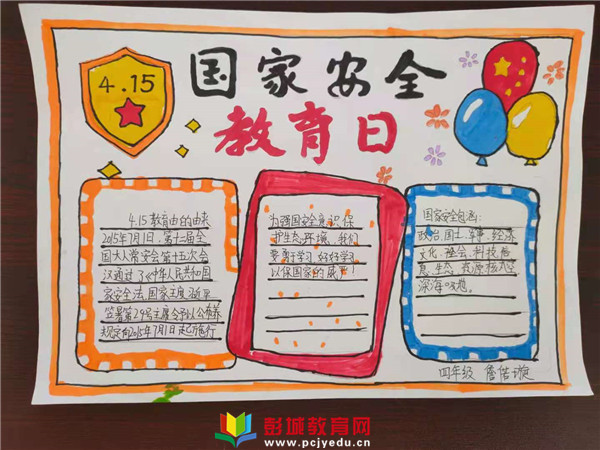 4.15
国家安全
教育日
4.15教育由的由来
2015年7月1日,第十二届全
国人大常安会第十五次会
议通过了《中华人民共和国
家安全法》,国家主席习近平
签署第29号主席令予以公布
规定自2015年7月1日起施行
为强国安全意识,保
护生态环境,我们
要勤于学习,好好学习
以保国家的威严!
国家安全包涵:
政治.国土.军事.经济
文化.社会.科技.信
息.生态.资源核太空
深海
四年级
彭城教育网
www.pcjyedu.cn